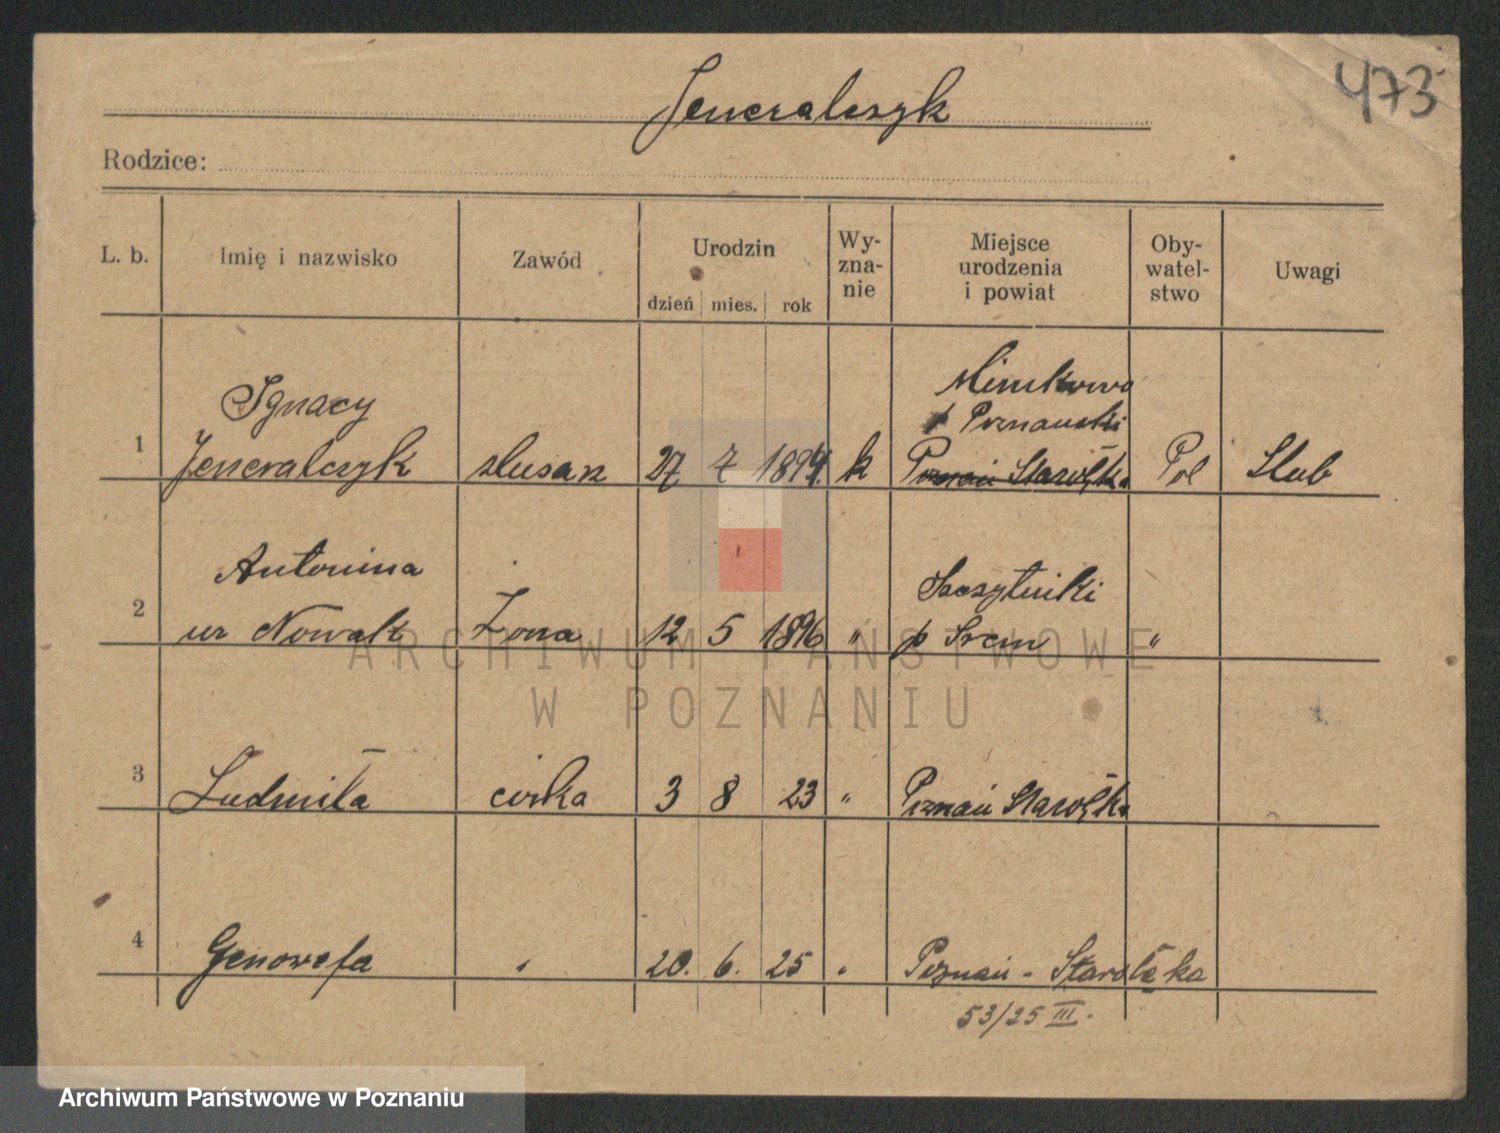 473
Jeneralczyk
Rodzice:
L. b. Imię i nazwisko Zawód Urodzin Wy- Miejsce Oby- Uwagi
zna- urodzenia watel-
nie i powiat stwo
dzień mies. rok
Ignacy Minikowo
p Poznański
1 Jeneralczyk slusarz 27 7 1894. k Poznań Starołęka Pol Slub
Antonina Szczytniki
2 ur Nowak Żona 12 5 1896 " p Srem "
3 Ludmiła córka 3 8 23 " Poznań Starołęka
4 Genowefa " 20. 6. 25 " Poznań - Starołęka
53/25 III.
ARCHIWUM PAŃSTWOWE
W POZNANIU
Archiwum Państwowe w Poznaniu